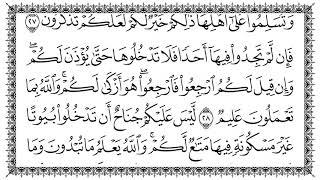 وَتُسَلِّمُوا۟ عَلَىٰٓ أَهْلِهَا ۚ ذَٰلِكُمْ خَيْرٌ لَّكُمْ لَعَلَّكُمْ تَذَكَّرُونَ ٢٧
فَإِن لَّمْ تَجِدُوا۟ فِيهَآ أَحَدًا فَلَا تَدْخُلُوهَا حَتَّىٰ يُؤْذَنَ لَكُمْ ۖ
وَإِن قِيلَ لَكُمُ ٱرْجِعُوا۟ فَٱرْجِعُوا۟ ۖ هُوَ أَزْكَىٰ لَكُمْ ۚ وَٱللَّهُ بِمَا
تَعْمَلُونَ عَلِيمٌ ٢٨ لَّيْسَ عَلَيْكُمْ جُنَاحٌ أَن تَدْخُلُوا۟ بُيُوتًا
غَيْرَ مَسْكُونَةٍ فِيهَا مَتَٰعٌ لَّكُمْ ۚ وَٱللَّهُ يَعْلَمُ مَا تُبْدُونَ وَمَا